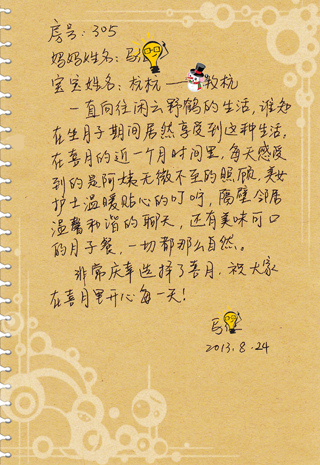 房号: 305
妈妈姓名: 马
宝宝姓名: 杭杭 — 敏杭
一直向往闲云野鹤的生活,谁知
在坐月子期间居然享受到这种生活,
在喜月的近一个月时间里,每天感受
到的是阿姨无微不至的照顾,美女
护士温暖贴心的叮咛,隔壁邻居
温馨和谐的聊天,还有美味可口
的月子餐,一切都那么自然。
非常庆幸选择了喜月,祝大家
在喜月里开心每一天!
马
2013.8.24